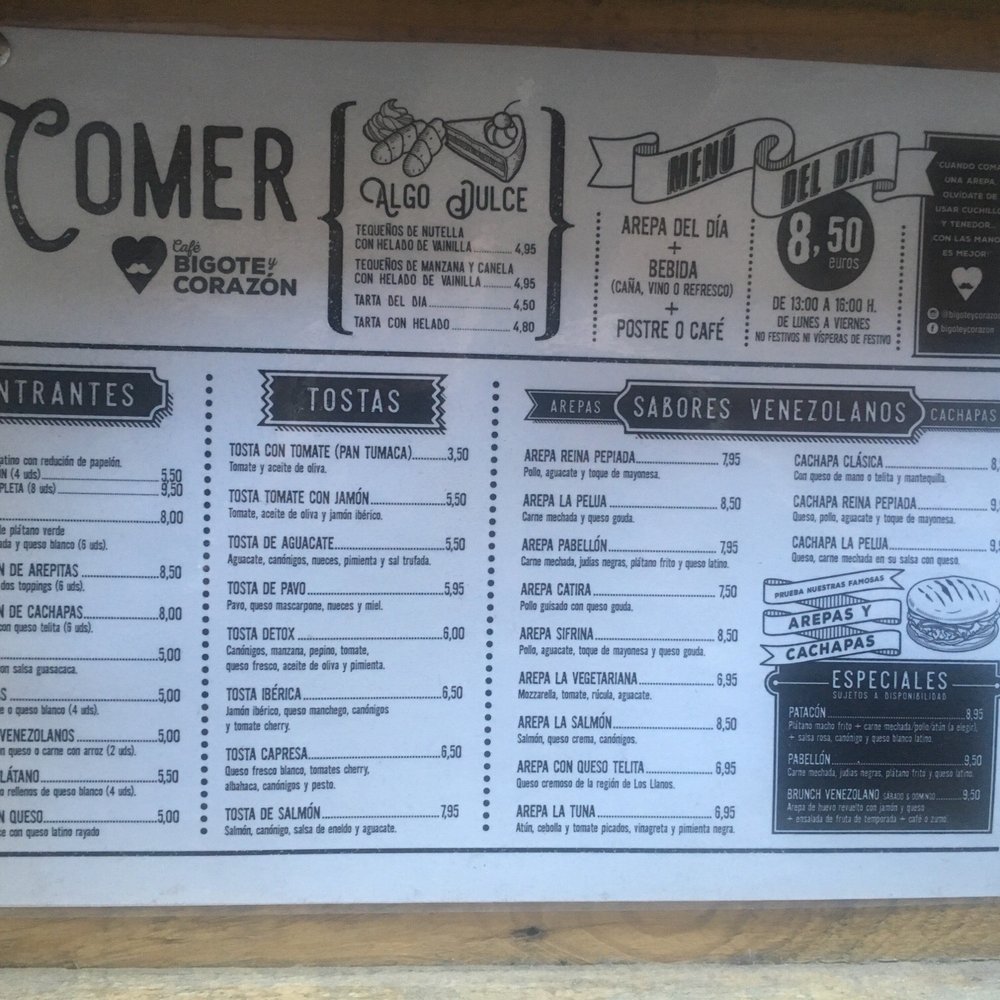 COMER
Café
BIGOTE y
CORAZÓN
ALGO DULCE
TEQUEÑOS DE NUTELLA
CON HELADO DE VAINILLA 4,95
TEQUEÑOS DE MANZANA Y CANELA
CON HELADO DE VAINILLA 4,95
TARTA DEL DIA 4,50
TARTA CON HELADO 4,80
MENÚ DEL DÍA
8,50
euros
AREPA DEL DÍA
+
BEBIDA
(CAÑA, VINO O REFRESCO)
+
POSTRE O CAFÉ
DE 13:00 A 16:00 H.
DE LUNES A VIERNES
NO FESTIVOS NI VÍSPERAS DE FESTIVO
CUANDO COMA
UNA AREPA
OLVÍDATE DE
USAR CUCHILL
Y TENEDOR...
CON LAS MANO
ES MEJOR
@bigoteycorazon
bigoteycorazon
NTRANTES
atino con redución de papelón.
N (4 uds) 5,50
PLETA (8 uds) 9,50
8,00
e plátano verde
ada y queso blanco (6 uds).
N DE AREPITAS 8,50
dos toppings (6 uds).
N DE CACHAPAS 8,00
con queso telita (6 uds).
5,00
on salsa guasacaca.
S 5,00
e o queso blanco (4 uds).
VENEZOLANOS 5,00
n queso o carne con arroz (2 uds).
LÁTANO 5,50
o rellenos de queso blanco (4 uds).
N QUESO 5,00
e con queso latino rayado
TOSTAS
TOSTA CON TOMATE (PAN TUMACA) 3,50
Tomate y aceite de oliva.
TOSTA TOMATE CON JAMÓN 5,50
Tomate, aceite de oliva y jamón ibérico.
TOSTA DE AGUACATE 5,50
Aguacate, canónigos, nueces, pimienta y sal trufada.
TOSTA DE PAVO 5,95
Pavo, queso mascarpone, nueces y miel.
TOSTA DETOX 6,00
Canónigos, manzana, pepino, tomate,
queso fresco, aceite de oliva y pimienta.
TOSTA IBÉRICA 6,50
Jamón ibérico, queso manchego, canónigos
y tomate cherry.
TOSTA CAPRESA 6,50
Queso fresco blanco, tomates cherry,
albahaca, canónigos y pesto.
TOSTA DE SALMÓN 7,95
Salmón, canónigo, salsa de eneldo y aguacate.
AREPAS SABORES VENEZOLANOS CACHAPAS
AREPA REINA PEPIADA 7,95
Pollo, aguacate y toque de mayonesa.
AREPA LA PELUA 8,50
Carne mechada y queso gouda.
AREPA PABELLÓN 7,95
Carne mechada, judias negras, plátano frito y queso latino.
AREPA CATIRA 7,50
Pollo guisado con queso gouda.
AREPA SIFRINA 8,50
Pollo, aguacate, toque de mayonesa y queso gouda.
AREPA LA VEGETARIANA 6,95
Mozzarella, tomate, rúcula, aguacate.
AREPA LA SALMÓN 8,50
Salmón, queso crema, canónigos.
AREPA CON QUESO TELITA 6,95
Queso cremoso de la región de Los Llanos.
AREPA LA TUNA 6,95
Atún, cebolla y tomate picados, vinagreta y pimienta negra.
CACHAPA CLÁSICA 8,
Con queso de mano o telita y mantequilla.
CACHAPA REINA PEPIADA 9,
Queso, pollo, aguacate y toque de mayonesa.
CACHAPA LA PELUA 9,9
Queso, carne mechada en su salsa con queso.
PRUEBA NUESTRAS FAMOSAS
AREPAS Y
CACHAPAS
ESPECIALES
SUJETOS A DISPONIBILIDAD
PATACÓN 8,95
Plátano macho frito + carne mechada/pollo/atún (a elegir)
+ salsa rosa, canónigo y queso blanco latino.
PABELLÓN 9,50
Carne mechada, judias negras, plátano frito y queso latino.
BRUNCH VENEZOLANO SÁBADO & DOMINGO 9,50
Arepa de huevo revuelto con jamón y queso
+ ensalada de fruta de temporada + café o zumo.